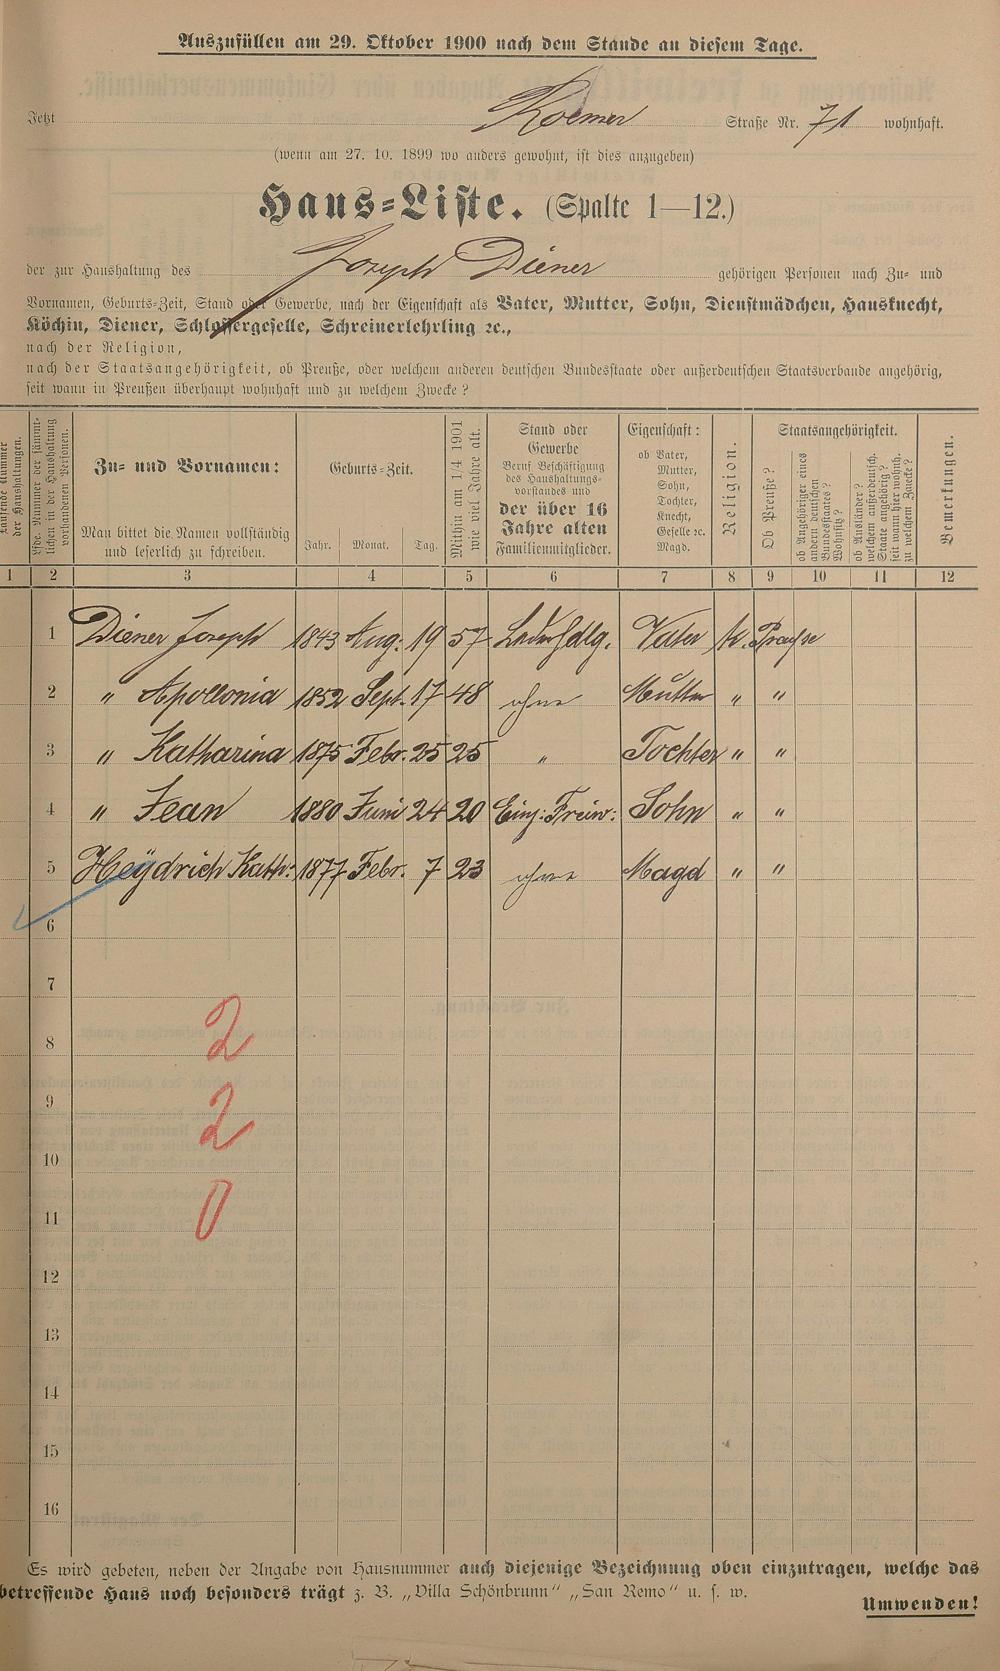 Auszufüllen am 29. Oktober 1900 nach dem Stande an diesem Tage.
Jetzt Roemer Straße Nr. 71 wohnhaft.
(wenn am 27. 10. 1899 wo anders gewohnt, ist dies anzugeben)
Haus-Liste. (Spalte 1—12.)
der zur Haushaltung des Joseph Diener gehörigen Personen nach Zu- und
Vornamen, Geburts-Zeit, Stand oder Gewerbe, nach der Eigenschaft als Vater, Mutter, Sohn, Dienstmädchen, Hausknecht,
Köchin, Diener, Schlossergeselle, Schreinerlehrling ꝛc.,
nach der Religion,
nach der Staatsangehörigkeit, ob Preuße, oder welchem anderen deutschen Bundesstaate oder außerdeutschen Staatsverbande angehörig,
seit wann in Preußen überhaupt wohnhaft und zu welchem Zwecke?
Laufende Nummer
der Haushaltungen.
Lfde. Nummer der sämmt-
lichen in der Haushaltung
vorhandenen Personen.
Zu- und Vornamen:
Man bittet die Namen vollständig
und leserlich zu schreiben.
Geburts-Zeit.
Jahr. Monat. Tag.
Mithin am 1/4 1901
wie viel Jahre alt.
Stand oder
Gewerbe
Beruf Beschäftigung
des Haushaltungs-
vorstandes und
der über 16
Jahre alten
Familienmitglieder.
Eigenschaft:
ob Vater,
Mutter,
Sohn,
Tochter,
Knecht,
Geselle ꝛc.
Magd.
Religion.
Staatsangehörigkeit.
Ob Preuße?
ob Angehöriger eines
andern deutschen
Bundesstaates?
Wohnsitz?
ob Ausländer?
welchem außerdeutsch.
Staate angehörig?
seit wann hier wohnh.
zu welchem Zwecke?
Bemerkungen.
1 2 3 4 5 6 7 8 9 10 11 12
1 Diener Joseph 1843 Aug: 19 57 Lederhdlg. Vater k. Preuße
2 " Apollonia 1852 Sept. 17 48 ohne Mutter " "
3 " Katharina 1875 Febr. 25 25 " Tochter " "
4 " Jean 1880 Juni 24 20 Einj: Freiw: Sohn " "
5 Heydrich Kath: 1877 Febr. 7 23 ohne Magd " "
6
7
8 2
9 2
10
11 0
12
13
14
15
16
Es wird gebeten, neben der Angabe von Hausnummer auch diejenige Bezeichnung oben einzutragen, welche das
betreffende Haus noch besonders trägt z. B. „Villa Schönbrunn“ „San Remo“ u. s. w.
Umwenden!